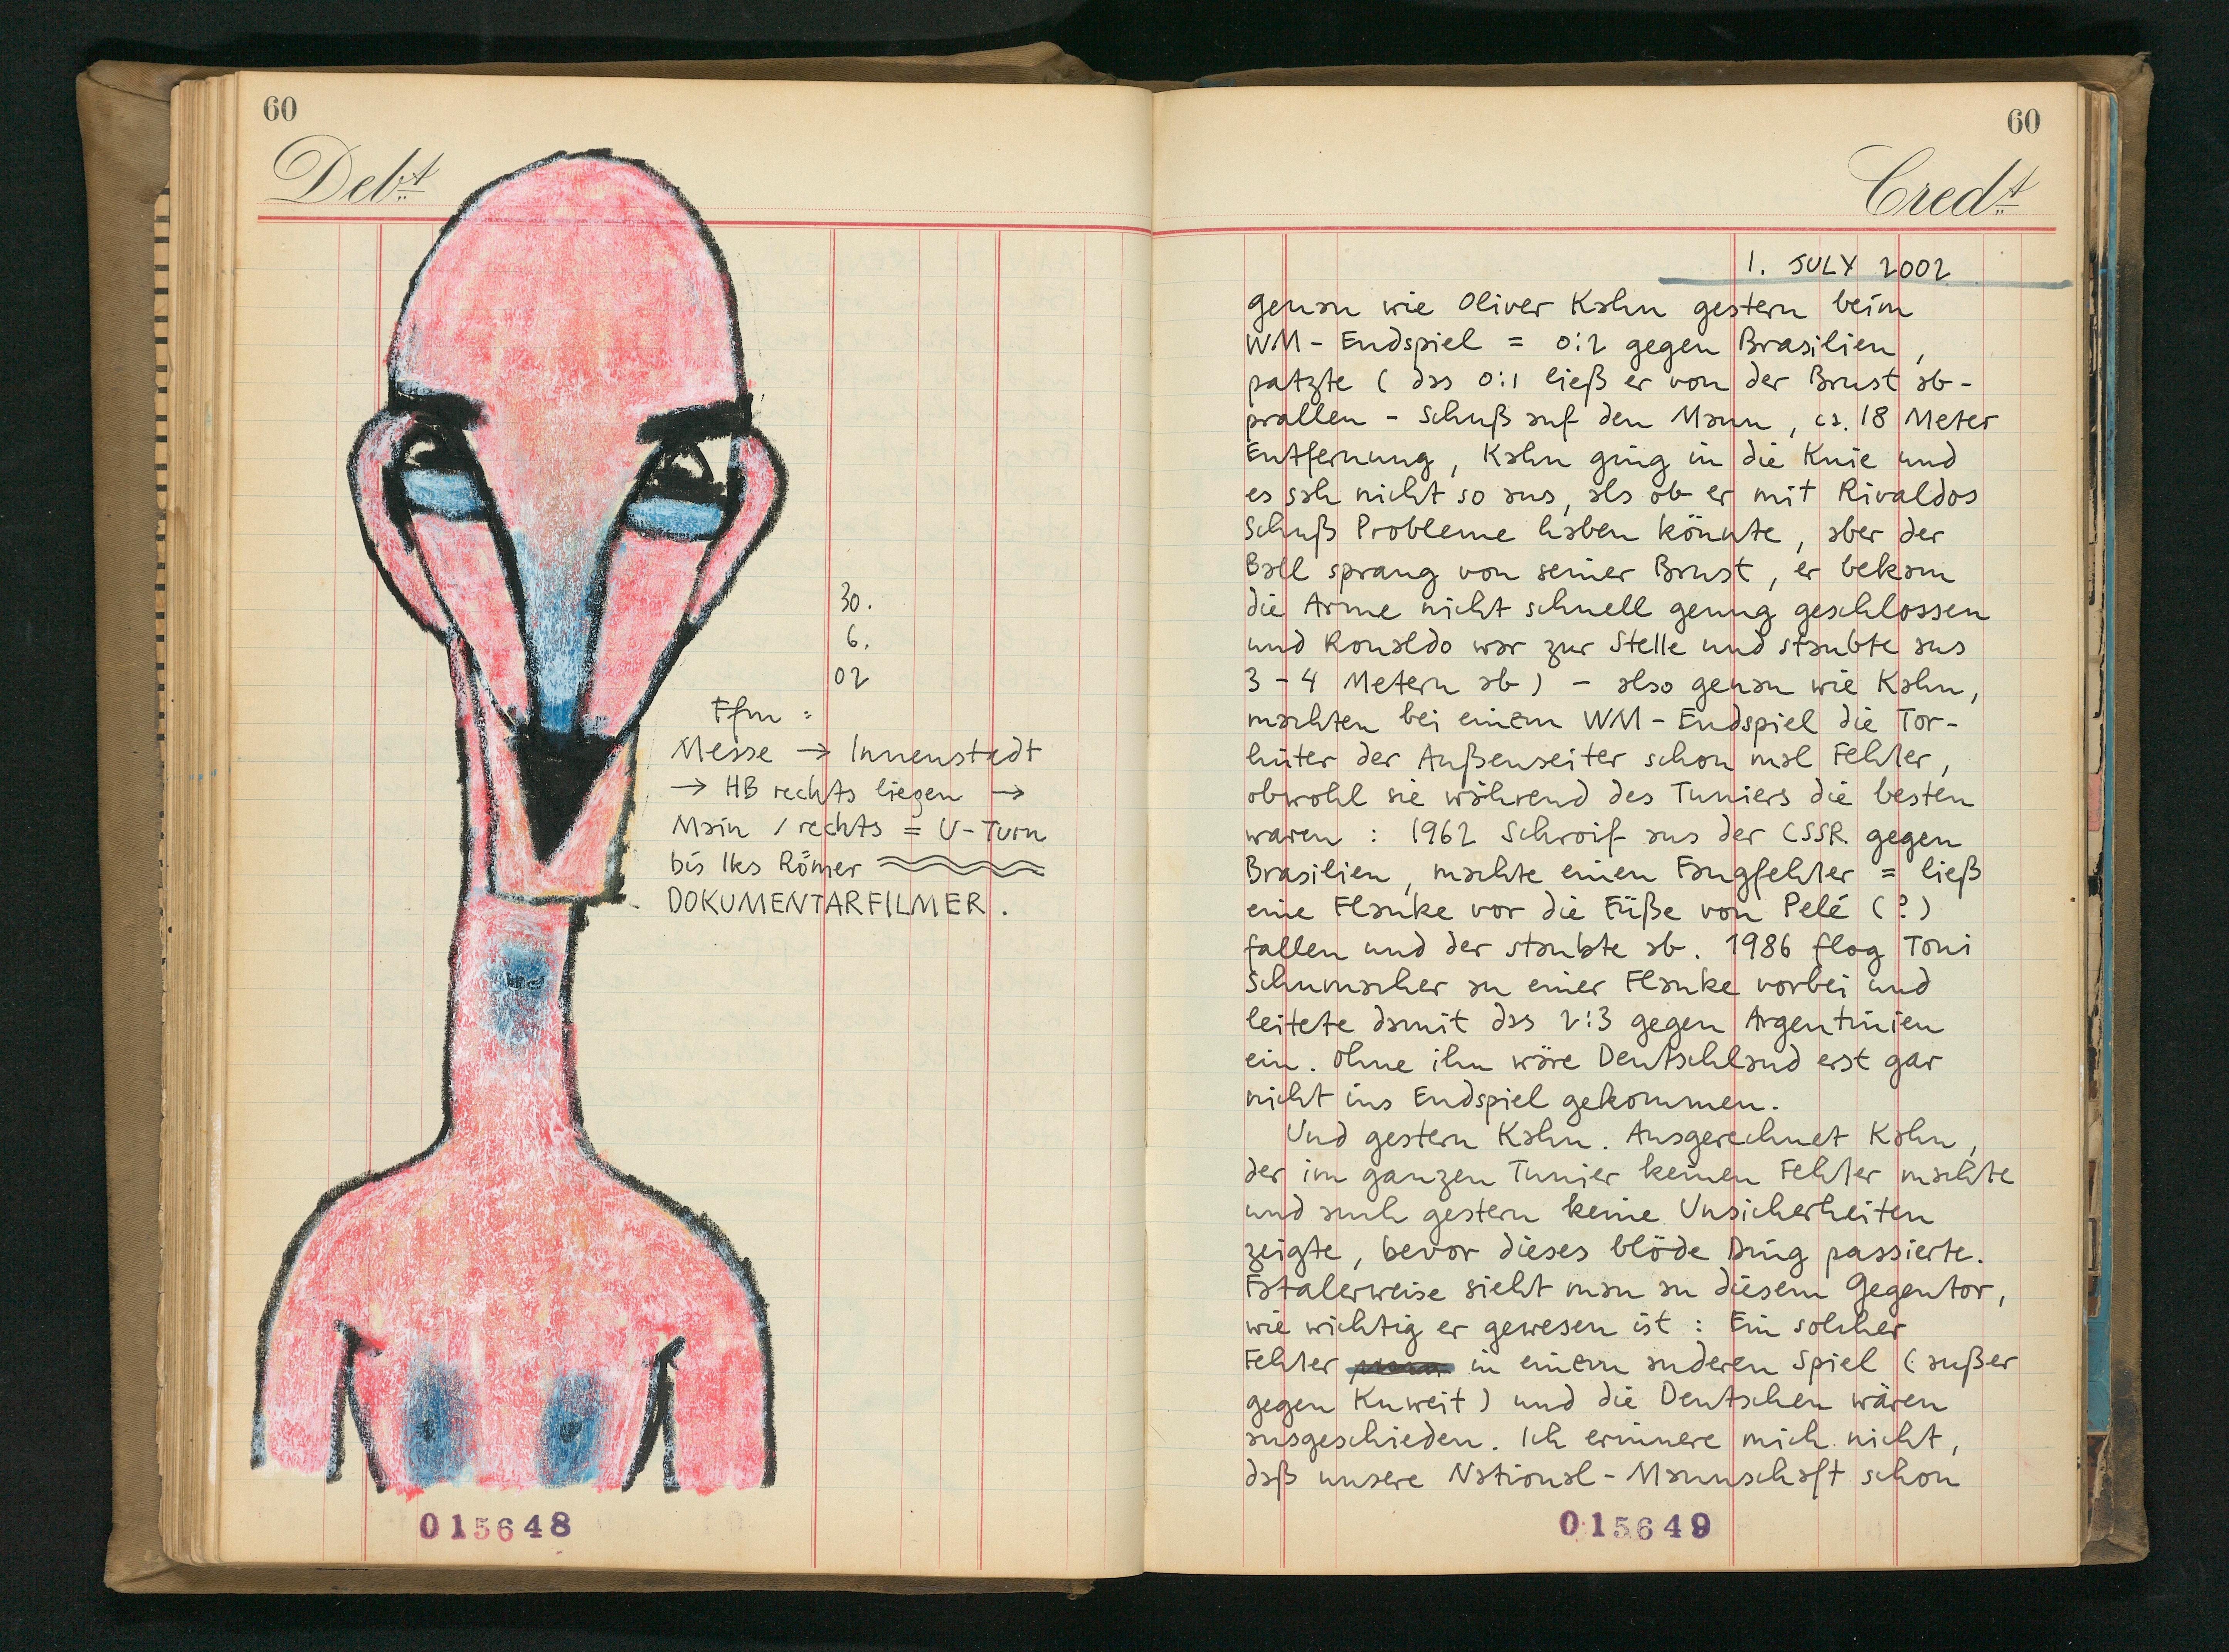 60
Debt
30.
6.
02
Ffm :
Messe → Innenstadt
→ HB rechts liegen →
Main / rechts = U-Turn
bis lks Römer
DOKUMENTARFILMER.
015648
60
Credt
1. JULY 2002
genau wie Oliver Kahn gestern beim
WM-Endspiel = 0:2 gegen Brasilien,
patzte (das 0:1 ließ er von der Brust ab-
prallen - Schuß auf den Mann, ca. 18 Meter
Entfernung, Kahn ging in die Knie und
es sah nicht so aus, als ob er mit Rivaldos
Schuß Probleme haben könnte, aber der
Ball sprang von seiner Brust, er bekam
die Arme nicht schnell genug geschlossen
und Ronaldo war zur Stelle und staubte aus
3-4 Metern ab) - also genau wie Kahn,
machten bei einem WM-Endspiel die Tor-
hüter der Außenseiter schon mal Fehler,
obwohl sie während des Tuniers die besten
waren : 1962 Schroif aus der CSSR gegen
Brasilien, machte einen Fangfehler = ließ
eine Flanke vor die Füße von Pelé (?)
fallen und der staubte ab. 1986 flog Toni
Schumacher an einer Flanke vorbei und
leitete damit das 2:3 gegen Argentinien
ein. Ohne ihn wäre Deutschland erst gar
nicht ins Endspiel gekommen.
Und gestern Kahn. Ausgerechnet Kahn,
der im ganzen Tunier keinen Fehler machte
und auch gestern keine Unsicherheiten
zeigte, bevor dieses blöde Ding passierte.
Fatalerweise sieht man an diesem Gegentor,
wie wichtig er gewesen ist : Ein solcher
Fehler in einem anderen Spiel (außer
gegen Kuweit) und die Deutschen wären
ausgeschieden. Ich erinnere mich nicht,
daß unsere National-Mannschaft schon
015649